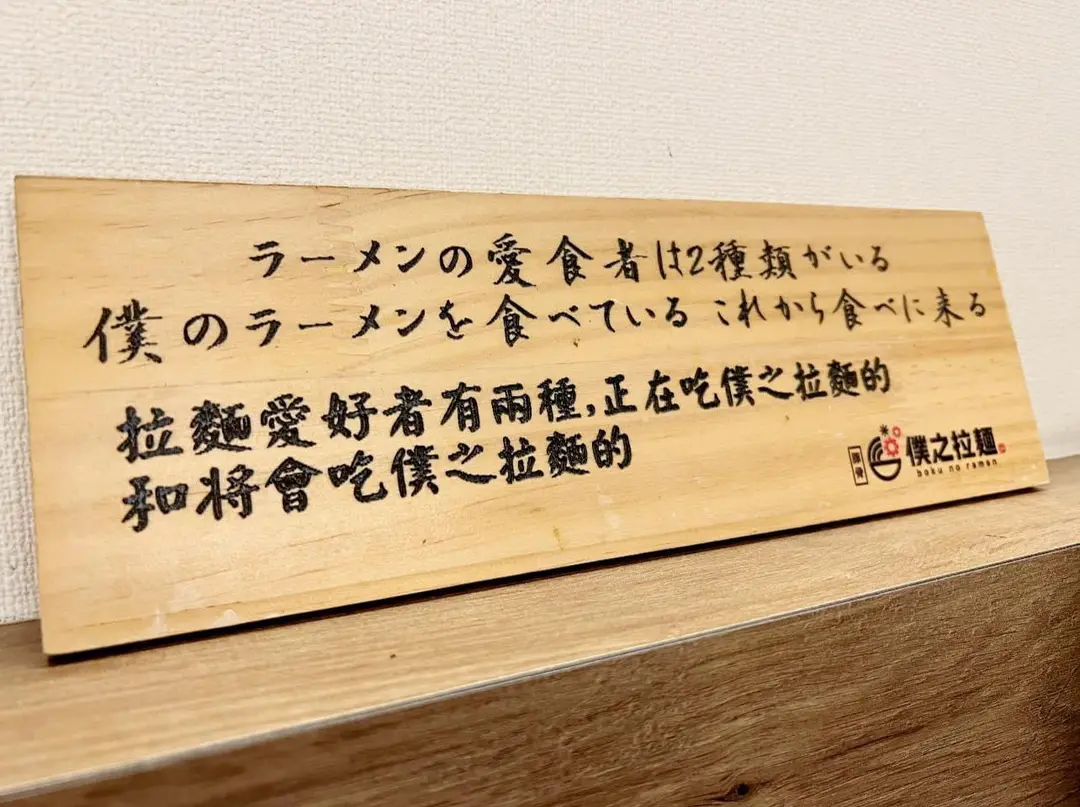 ラーメンの愛食者は2種類がいる
僕のラーメンを食べている これから食べに来る
拉麵愛好者有兩種,正在吃僕之拉麵的
和將會吃僕之拉麵的
僕之拉麺
boku no ramen